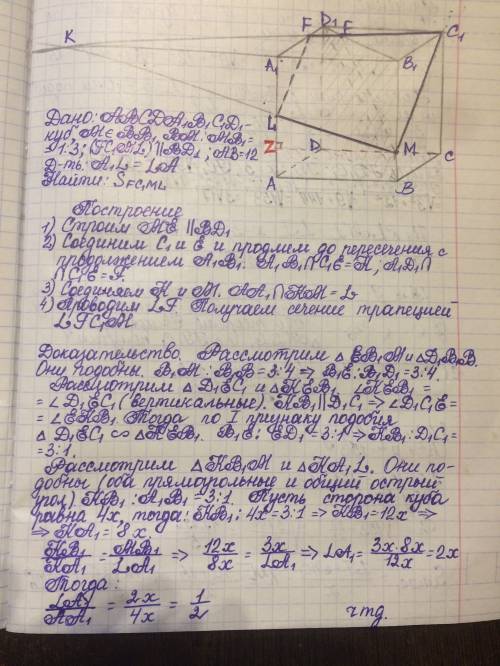 K
F D₁ E C₁
A₁ B₁
L
Z D M C
A B
Дано: ABCDA₁B₁C₁D₁-
куб M∈BB₁ BM:MB₁=
=1:3; (FC₁ML)||BD₁; AB=12
Д-ть: A₁L=LA
Найти: SFC₁ML
Построение
1) Строим ME || BD₁
2) Соединим C₁ и E и продлим до пересечения с
продолжением A₁B₁. A₁B₁∩C₁E=K, A₁D₁∩
∩C₁E=F.
3) Соединяем K и M. AA₁∩KM=L
4) Проводим LF. Получаем сечение трапецией
LFC₁M
Доказательство. Рассмотрим △EB₁M и △D₁B₁B.
Они подобны. B₁M:B₁B=3:4 ⇒ B₁E:B₁D₁=3:4.
Рассмотрим △D₁EC₁ и △KEB₁. ∠KEB₁=
=∠D₁EC₁ (вертикальные). KB₁||D₁C₁ ⇒ ∠D₁C₁E=
=∠EKB₁. Тогда по I признаку подобия
△D₁EC₁ ∾ △KEB₁. B₁E:ED₁=3:1 ⇒ KB₁:D₁C₁=
=3:1.
Рассмотрим △KB₁M и △KA₁L. Они по-
добны (оба прямоугольные и общий острый
угол) KB₁:A₁B₁=3:1 Пусть сторона куба
равна 4x, тогда: KB₁:4x=3:1 ⇒ KB₁=12x ⇒
⇒ KA₁=8x
KB₁/KA₁ = MB₁/LA₁ ⇒ 12x/8x = 3x/LA₁ ⇒ LA₁ = 3x·8x/12x = 2x
Тогда:
LA₁/AA₁ = 2x/4x = 1/2 чтд.